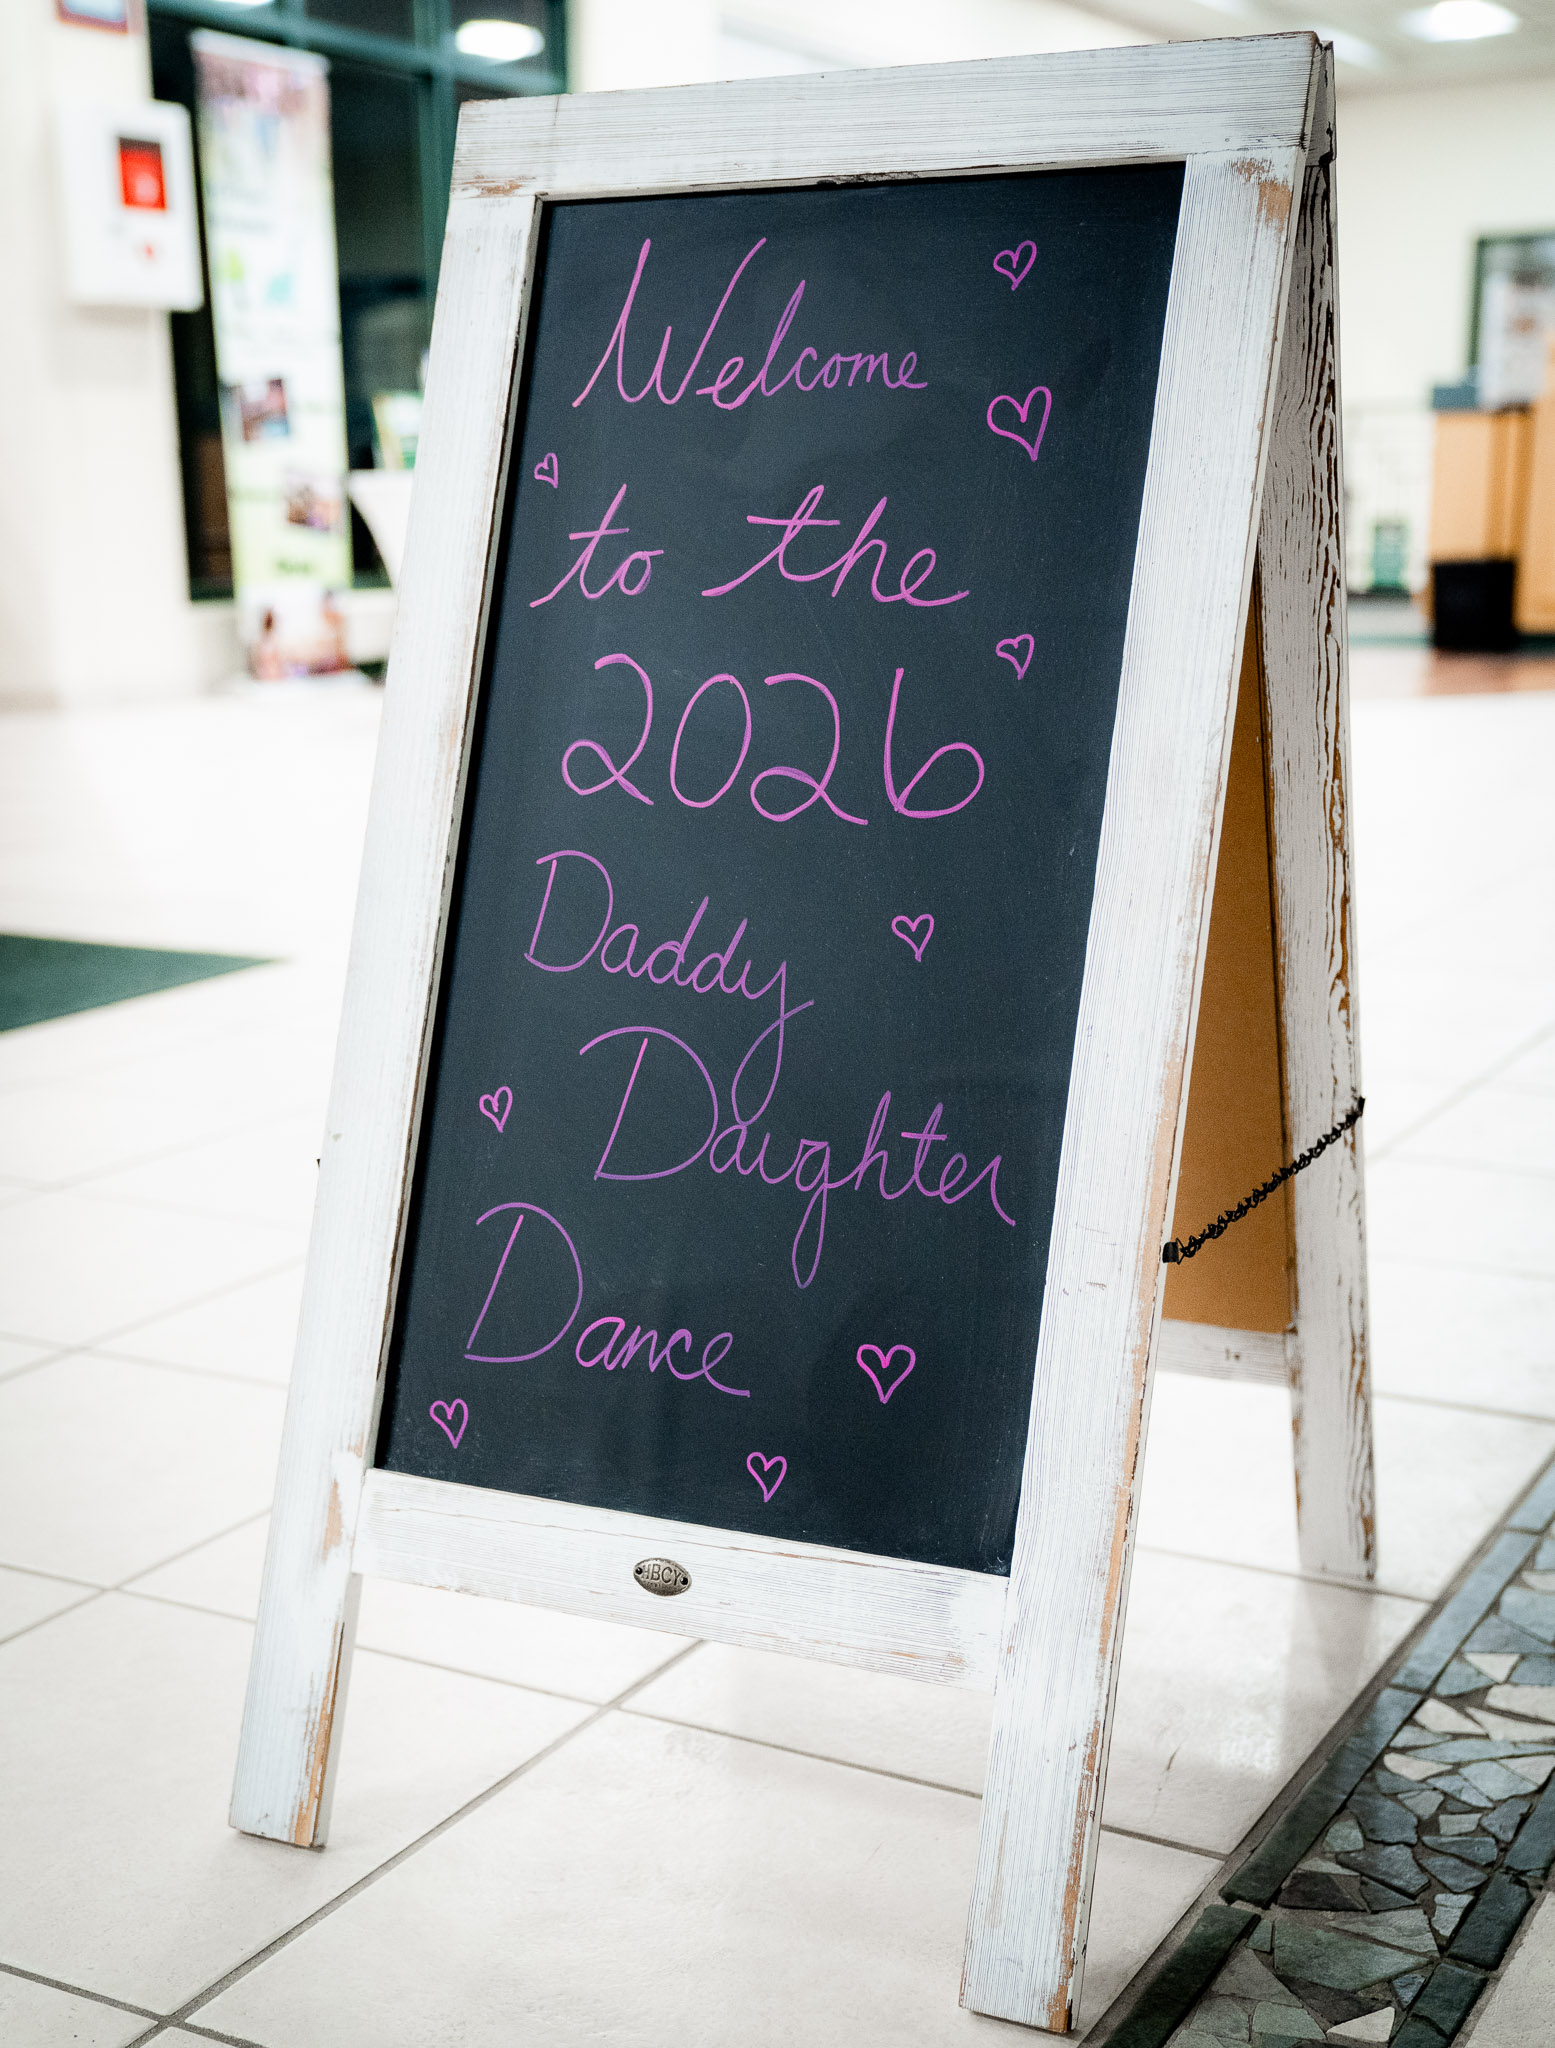 Welcome
to the
2026
Daddy
Daughter
Dance
HBCY